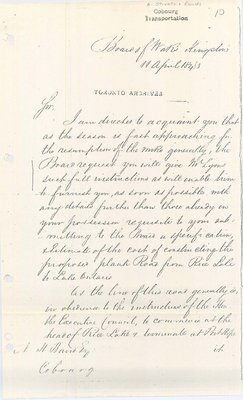 Streets & Roads
10
Cobourg
Transportation
Board of Works Kingston
11 April 1843
TORONTO ARCHIVES
Sir,
I am directed to acquaint you that
as the season is fast approaching for
the resumption of the works generally, the
Board request you will give Mr Lyons
such full instructions as will enable him
to furnish you, as soon as possible with
any details further than those already in
your possession requisite to your sub-
mitting to the Board a specific
estimate of the cost of constructing the
proposed plank Road from Rice Lake
to Lake Ontario
As the line of this road generally is,
in obedience to the instructions of the Hon
the Executive Council, to commence at the
head of Rice Lake & terminate at Port Hope
it
N. H. Baird Esq
Cobourg